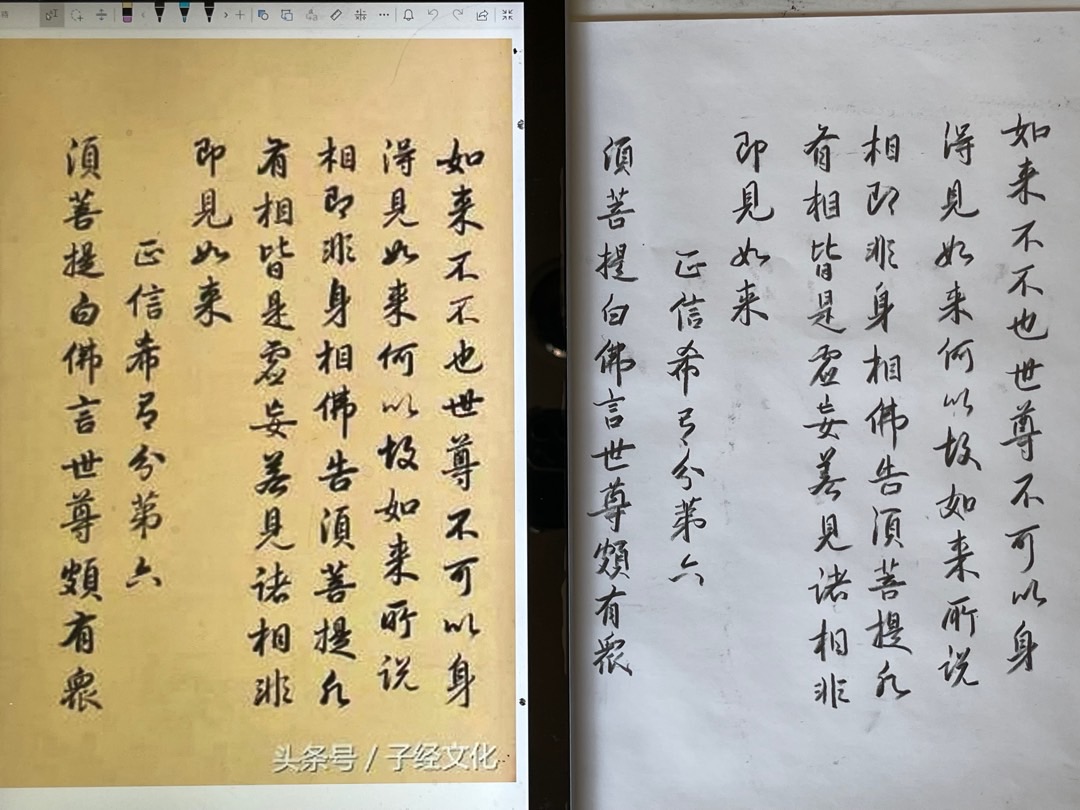 如来不不也世尊不可以身
得見如来何以故如来所说
相即非身相佛告須菩提凡
有相皆是虚妄若見诸相非
即見如来
正信希有分第六
須菩提白佛言世尊頗有衆
头条号 / 子经文化
如来不不也世尊不可以身
得見如来何以故如来所说
相即非身相佛告須菩提凡
有相皆是虚妄若見诸相非
即見如来
正信希有分第六
須菩提白佛言世尊頗有衆